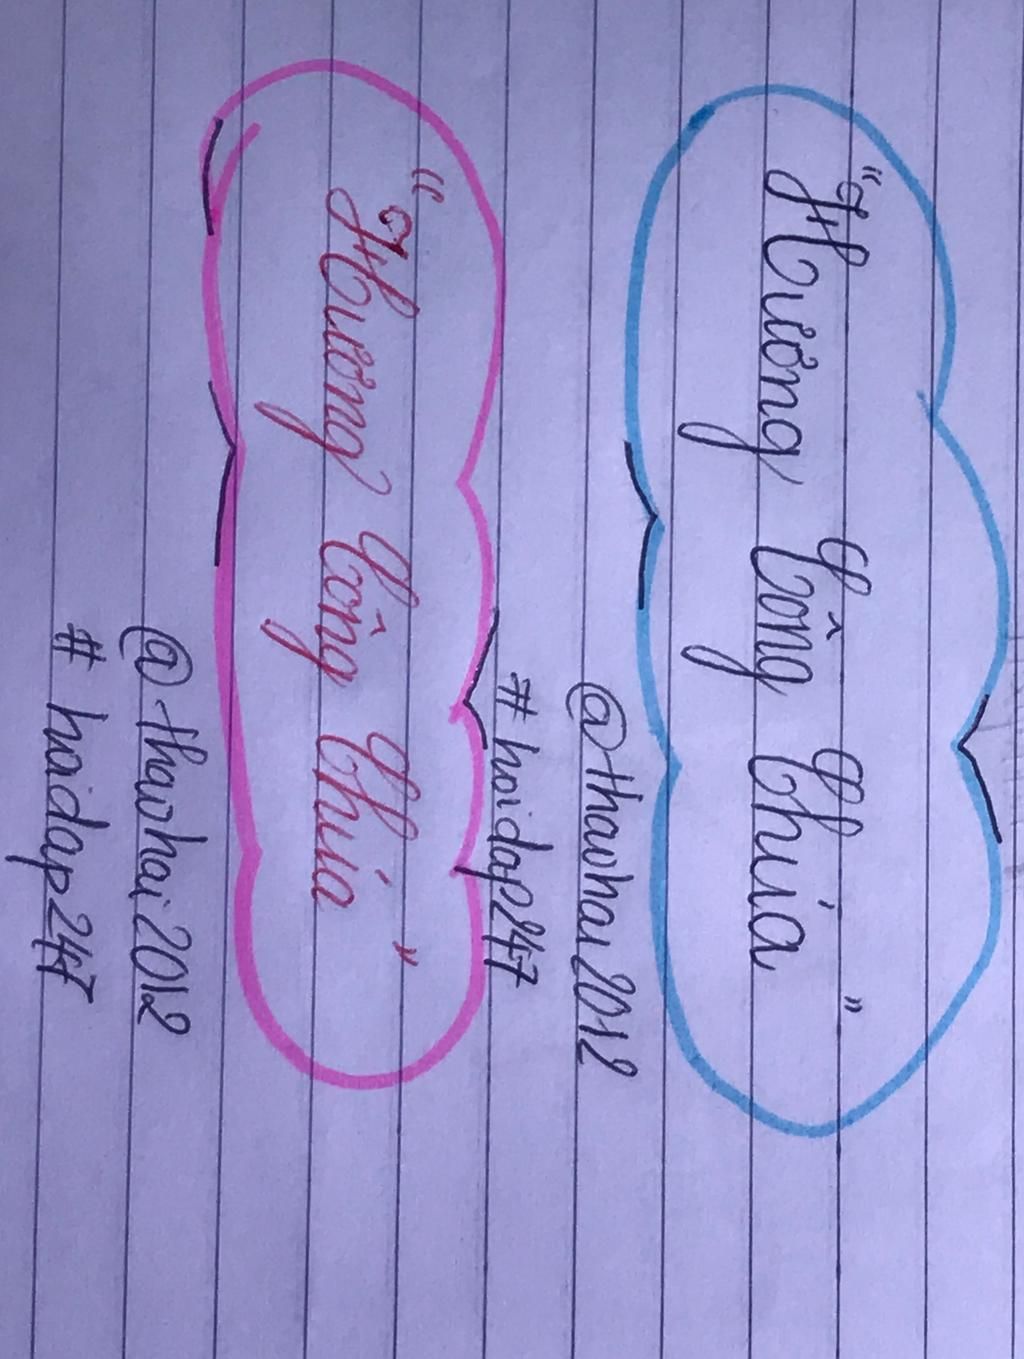 "Hương Cống Chúa"
@thaohai2012
#hoidap247
"Hương Công Chúa"
@thaohai2012
#hoidap247